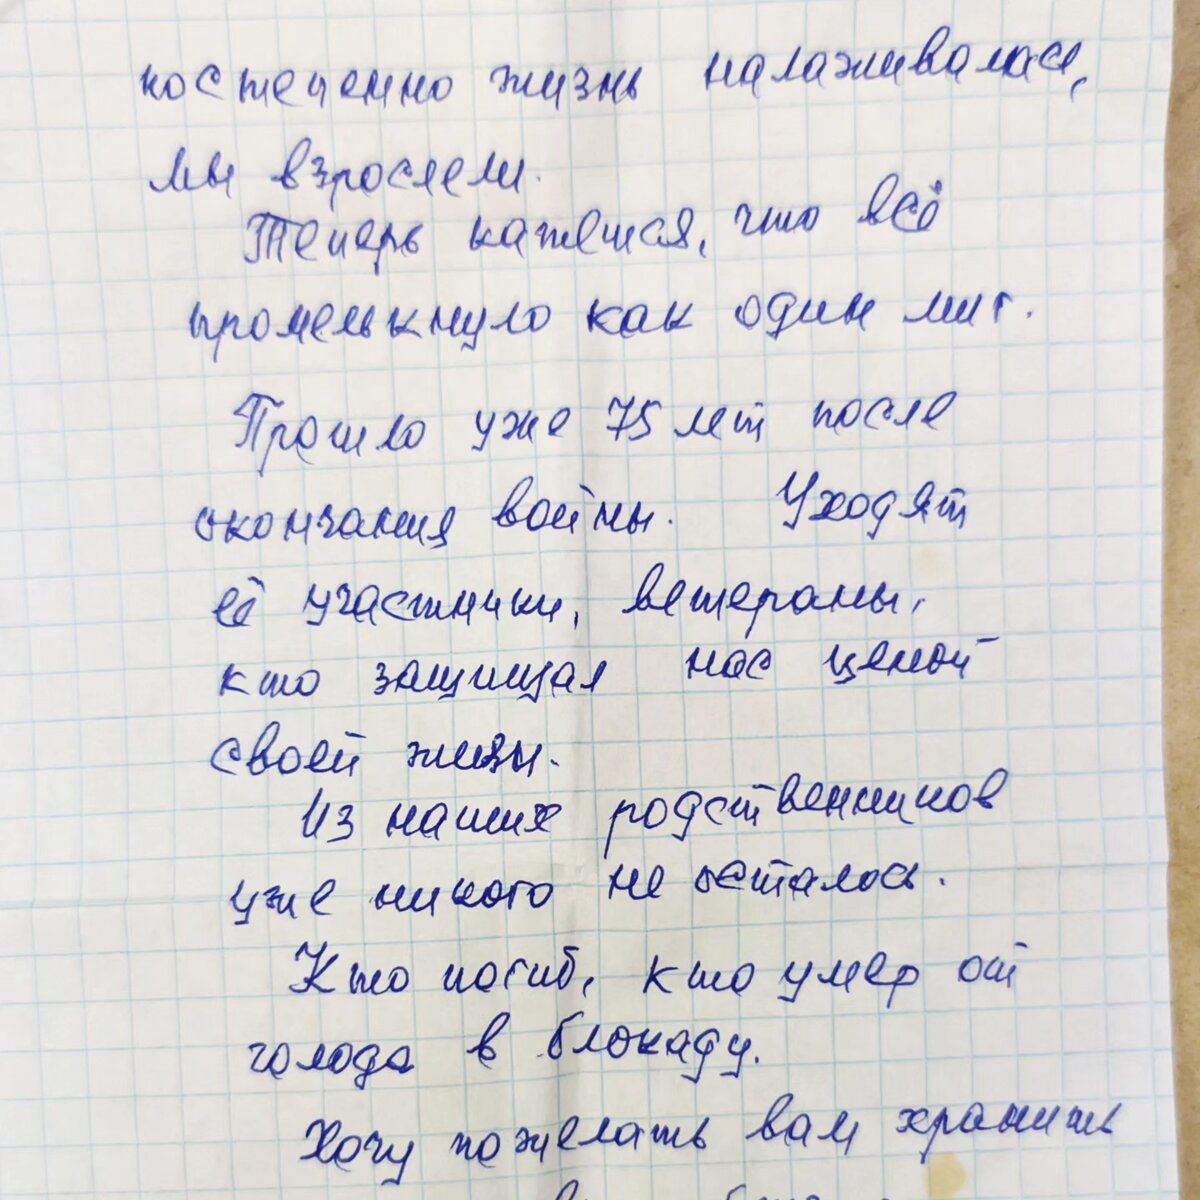 постепенно жизнь налаживалась,
мы взрослели.
Теперь кажется, что всё
промелькнуло как один миг.
Прошло уже 75 лет после
окончания войны. Уходят
её участники, ветераны,
кто защищал нас ценой
своей жизни.
Из наших родственников
уже никого не осталось.
Кто погиб, кто умер от
голода в блокаду.
Хочу пожелать вам хранить